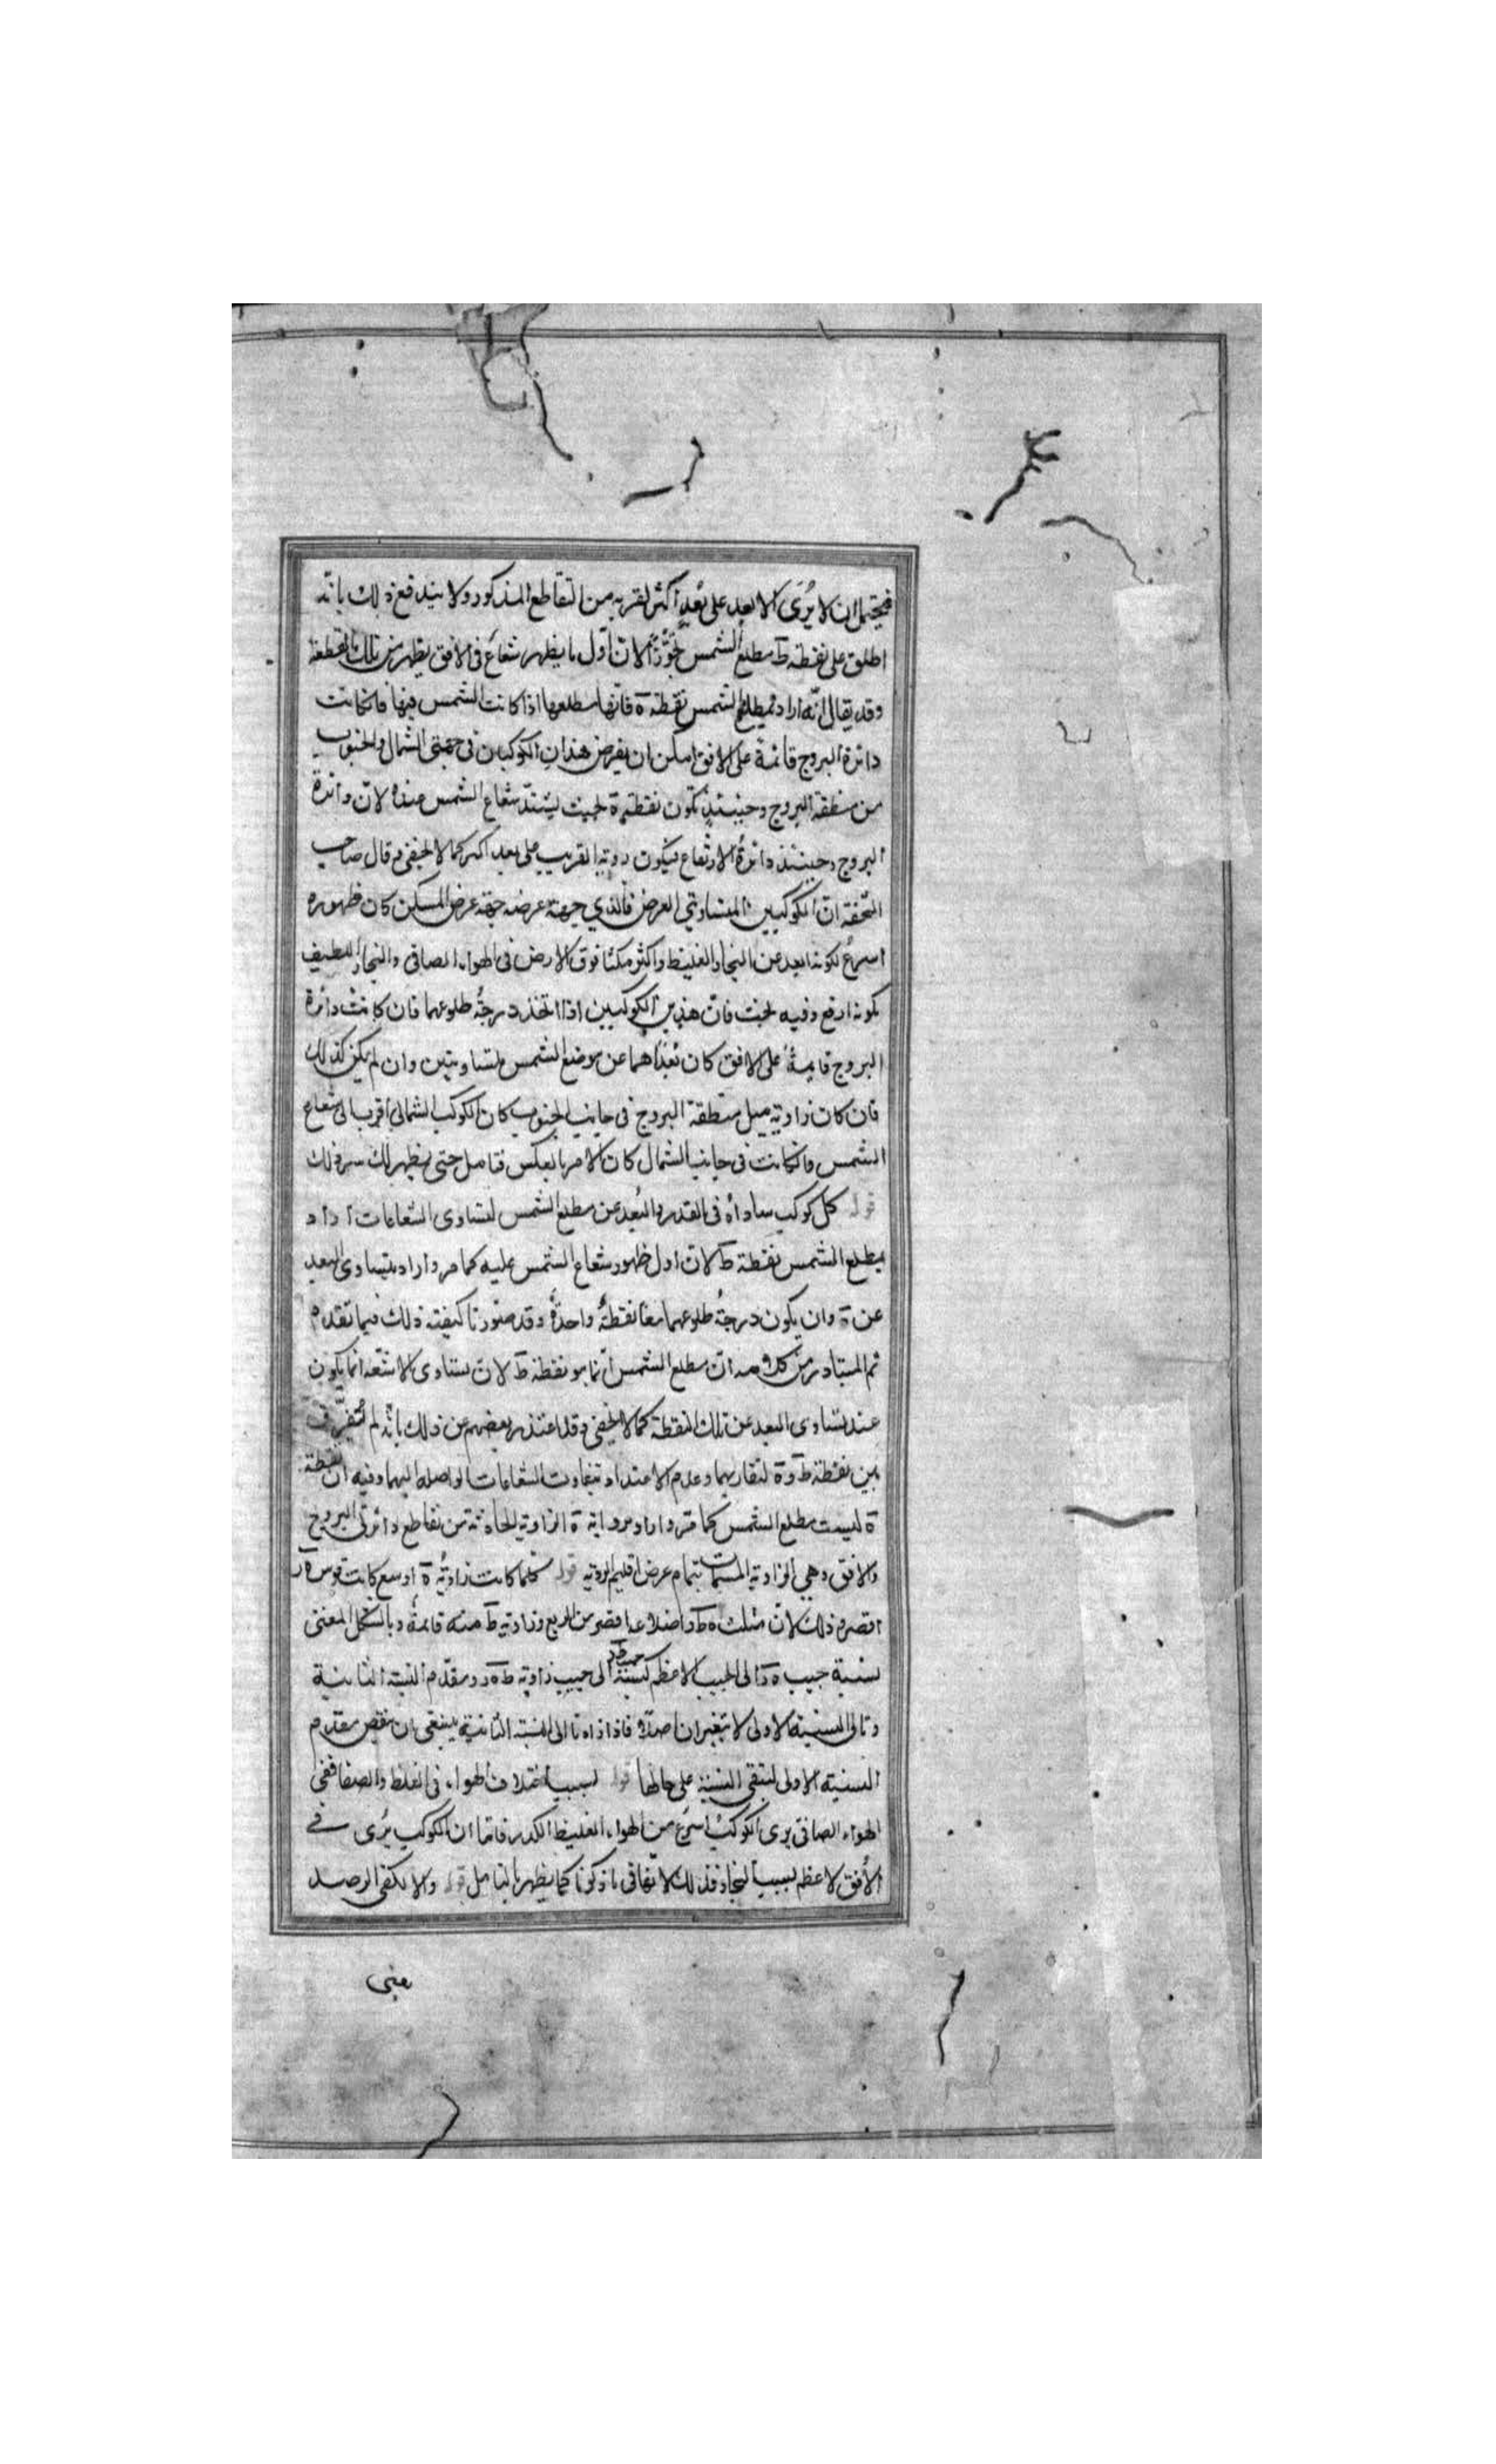 فيحتمل ان لا يُرَى الابعد على بُعدٍ اكثر لقربه من التقاطع المذكور ولا يندفع ذلك بانّه
اطلق على نقطة ط مطلع الشمس تجوّزاً لانّ اوّل ما يظهر شعاع فى الافق يظهر من تلك النقطة
وقد يقال انّه اراد بمطلع الشمس نقطة ة فانّها مطلعها اذا كانت الشمس فيها فان كانت
دائرة البروج قائمة على الافق امكن ان يفرض هذان الكوكبان فى جهتى الشمال والجنوب
من منطقة البروج وحينئذٍ تكون نقطة ة بحيث يشتدّ شعاع الشمس عنده لانّ دائرة
البروج حينئذ دائرةُ الارتفاع فيكون روية القريب على بعد اكبر كما لا يخفى وقال صاحب
التّحفة انّ الكوكبين المتساويتى العرض فالذي جهة عرضه جهة عرض المسكن كان ظهوره
اسرع لكونه ابعد عن البخار الغليظ واكثر مكثا فوق الارض فى الهواء الصافى والبخار اللطيف
لكونه ارفع وفيه بحث فانّ هذين الكوكبين اذا اتخذ درجتُه طلوعهما فان كانت دائرة
البروج قايمةً على الافق كان بُعداهما عن موضع الشمس متساويتين وان لم يكن كذلك
فان كان زاوية ميل منطقة البروج فى جانب الجنوب كان الكوكب الشمالى اقرب الى شعاع
الشمس وان كانت فى جانب الشمال كان الامر بالعكس فتامل حتى يظهر لك سر ذلك
قوله كل كوكب ساواه فى القدر والبُعد عن مطلع الشمس لتساوى الشعاعات اراد
بمطلع الشمس نقطة ط لانّ اول ظهور شعاع الشمس عليه كما مر واراد بتساوى البعد
عن ة وان يكون درجتُه طلوعهما معا نقطةً واحدةً وقد صورنا كيفية ذلك فيما تقدم
ثم المتبادر من كلامه انّ مطلع الشمس انّما هو نقطة ط لانّ تساوى الاشعّه انما يكون
عند تساوى البعد عن تلك النقطة كما لا يخفى وقد اعتذر بعضهم عن ذلك بانّه لم يُفرّق
بين نقطة ط و ة لتقاربهما وعدم الاعتداد بتفاوت الشعاعات الواصله اليهما وفيه انّ نقطة
ة ليست مطلع الشمس كما مرّ واراد بزواية ة الزاوية الحادثة من تقاطع دائرتى البروج
والافق وهي الزاوية المسمات بتمام عرض اقليم الروية قوله كلما كانت زاويةُ ة اوسع كانت قوس ة د
اقصر وذلك لانّ مثلث ة ط د اضلاعه اقصر من الربع وزاوية ط منه قائمةُ وبالشكل المغنى
نسبة جيب ة د الى الجيب الاعظم كنسبة جيب ط د الى جيب زاوية ط ة د ومقدّم النسبة الثانية
وتالى النسبة الاولى لا يتغيران اصلا فاذا زاد تالى النسبة الثانية ينبغى ان ينقص مقدم
النسبة الاولى لتبقى النسبة على حالها قوله بسبب اختلاف الهواء فى الغلظ والصفا ففى
الهواء الصافى يرى الكوكبُ اسرَعَ من الهواء الغليظ الكدر فامّا ان الكوكب يُرى فے
الأُفق لاعظم بسبب البخار فذلك لا ينافى ما ذكرنا كما يظهر بالتامل قوله والا لكفى الرصد
يعنى